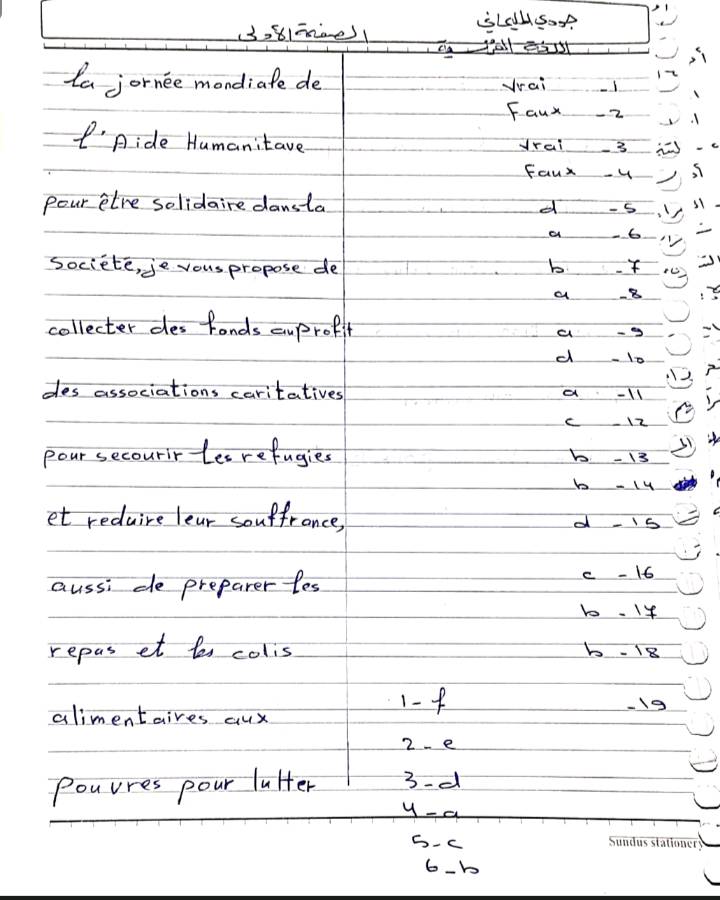 الصفحة الأولى
جودي المليماني
اللغة الفرنسية
1- Vrai
2- Faux
3- Vrai
4- Faux
5- d
6- a
7- b
8- a
9- a
10- d
11- a
12- c
13- b
14- b
15- d
16- c
17- b
18- b
19-
1- f
2- e
3- d
4- a
5- c
6- b
la jornée mondiale de
l'Aide Humanitave
pour être solidaire dans la
société, je vous propose de
collecter des fonds au profit
des associations caritatives
pour secourir les refugies
et reduire leur souffrance,
aussi de preparer les
repas et les colis
alimentaires aux
pouvres pour lutter
Sundus stationery